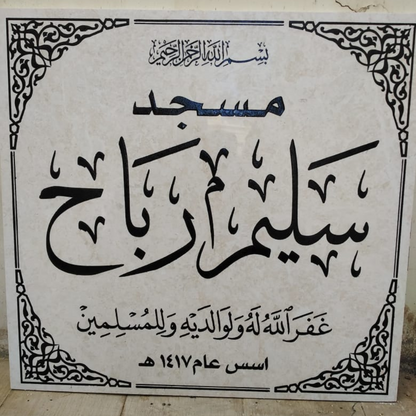 بسم الله الرحمن الرحيم
مسجد
سليم رباح
غفر الله له ولوالديه وللمسلمين
اسس عام ١٤١٧ هـ